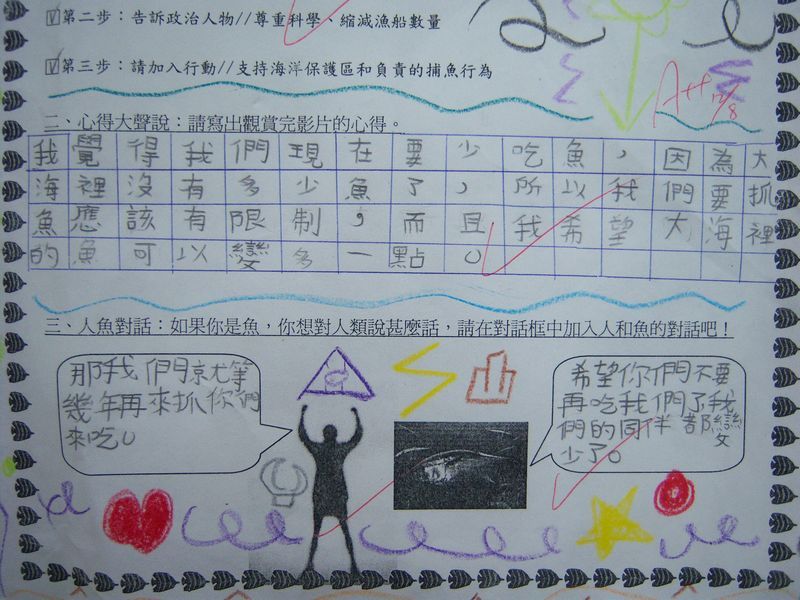 ☑第二步：告訴政治人物//尊重科學、縮減漁船數量
☑第三步：請加入行動//支持海洋保護區和負責的捕魚行為
A++ 12/8
二、心得大聲說：請寫出觀賞完影片的心得。
我覺得我們現在要少吃魚，因為大
海裡沒有多少魚了，所以我們要抓
魚應該有限制，而且我希望大海裡
的魚可以變多一點。
三、人魚對話：如果你是魚，你想對人類說甚麼話，請在對話框中加入人和魚的對話吧！
那我們就等
幾年再來抓你們
來吃。
希望你們不要
再吃我們了我
們的同伴都變
少了。